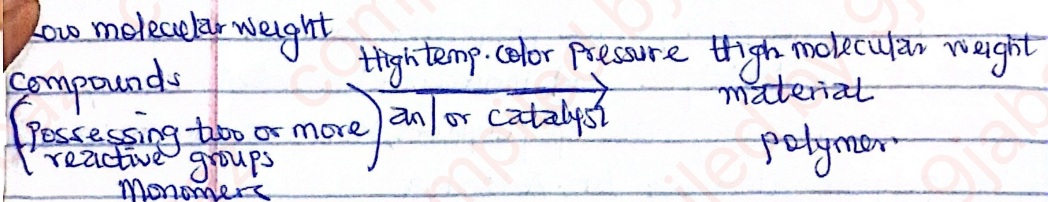 Low molecular weight
compounds
(Possessing two or more
reactive groups)
Monomers
High temp. color Pressure
an/or catalyst
High molecular weight
material
polymer.